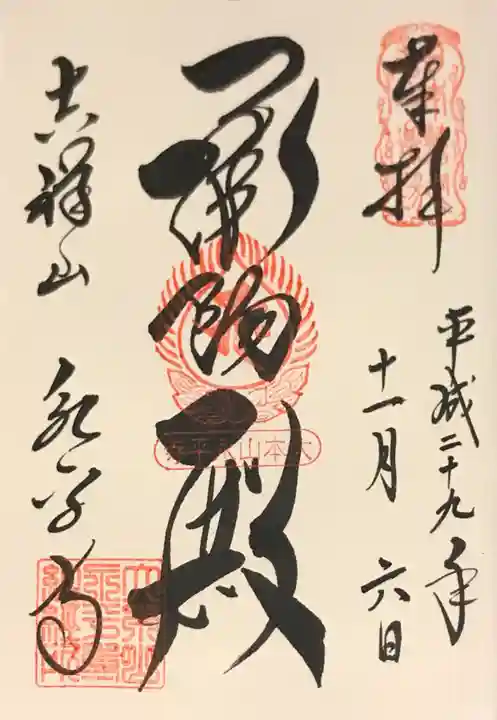 奉拝
平成二十九年
十一月六日
承陽殿
大本山永平寺
吉祥山 永平寺